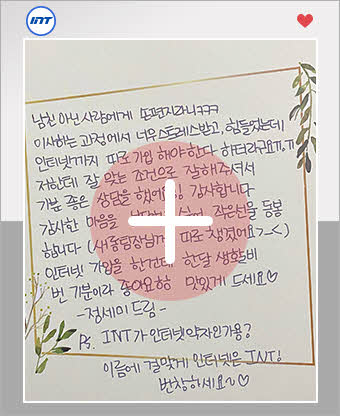 INT
남친 아닌 사람에게 또 편지라니ㅋㅋㅋ
이사하는 과정에서 너무 스트레스받고, 힘들었는데
인터넷까지 따로 가입 해야한다 하더라구요ㅠ,ㅠ
저한테 잘 맞는 조건으로 잘해주셔서
기분 좋은 상담을 했어요! 감사합니다
감사한 마음을 작은선물 동봉
합니다 (세종팀장님께 따로 챙겼어요~<)
인터넷 가입을 한건데 한달 생활비
번 기분이라 좋아요항 맛있게 드세요♡
-정세미 드림-
Ps. INT가 인터넷 약자인가용?
이름에 걸맞게 인터넷은 INT!
번창하세요~♡